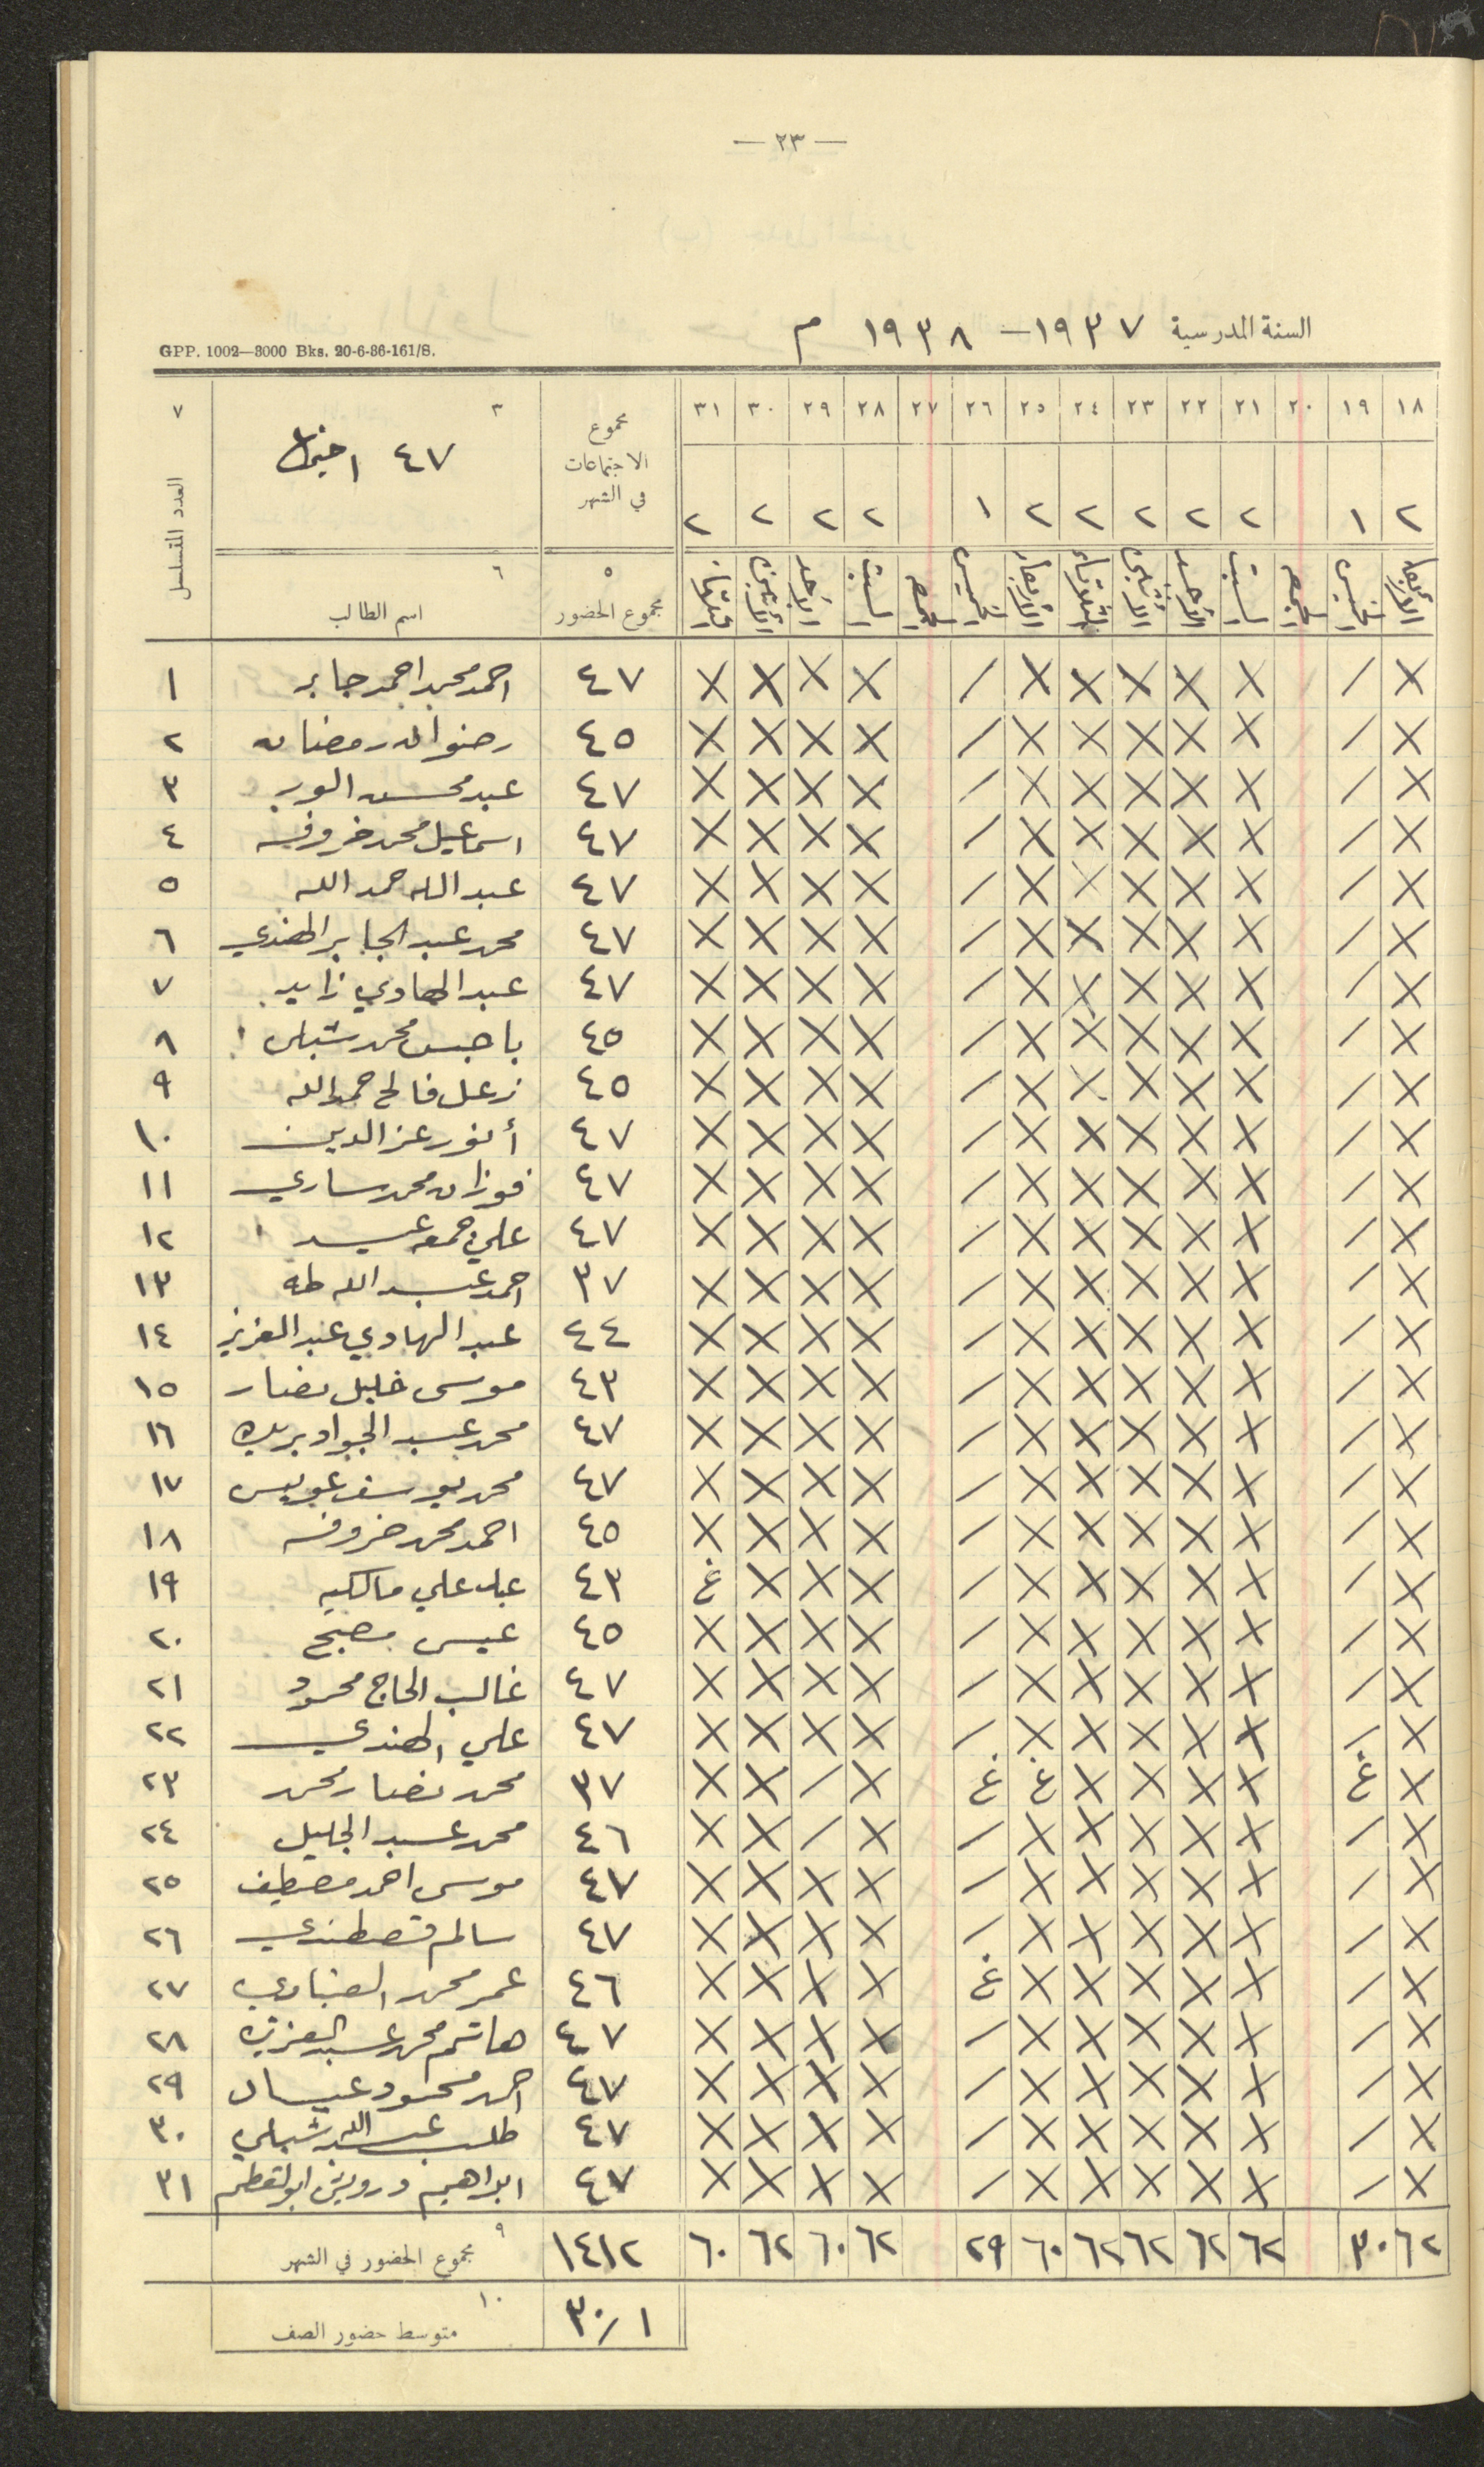 — ٢٣ —
السنة المدرسية ١٩٣٧ – ١٩٣٨ م
GPP. 1002—3000 Bks. 20-6-36-161/S.
١٨ ١٩ ٢٠ ٢١ ٢٢ ٢٣ ٢٤ ٢٥ ٢٦ ٢٧ ٢٨ ٢٩ ٣٠ ٣١ مجموع الاجتماعات في الشهر ٣ ٤٧ ٧ العدد المتسلسل
٢ ١ ٢ ٢ ٢ ٢ ٢ ١ ٢ ٢ ٢ ٢
الأربعاء الخميس الجمعة السبت الأحد الأثنين الثلاثاء الأربعاء الخميس الجمعة السبت الأحد الأثنين الثلاثاء ٥ مجموع الحضور ٦ اسم الطالب
X / X X X X X / X X X X ٤٧ احمد محمد احمد جابر ١
X / X X X X X / X X X X ٤٥ رضوان رمضان ٢
X / X X X X X / X X X X ٤٧ عبد محسن ٣
X / X X X X X / X X X X ٤٧ اسماعيل محمد خروفه ٤
X / X X X X X / X X X X ٤٧ عبد الله حمد الله ٥
X / X X X X X / X X X X ٤٧ محمد عبد الجابر الهندي ٦
X / X X X X X / X X X X ٤٧ عبد الهادي زايد ٧
X / X X X X X / X X X X ٤٥ باجس محمد شبلي ٨
X / X X X X X / X X X X ٤٥ زعل فالح حمدالله ٩
X / X X X X X / X X X X ٤٧ أنور عز الدين ١٠
X / X X X X X / X X X X ٤٧ فوزان محمد ساري ١١
X / X X X X X / X X X X ٤٧ علي جمعه عيد ١٢
X / X X X X X / X X X X ٣٧ احمد عبد الله طه ١٣
X / X X X X X / X X X X ٤٤ عبد الهادي عبد العزيز ١٤
X / X X X X X / X X X X ٤٣ موسى خليل نصار ١٥
X / X X X X X / X X X X ٤٧ محمد عبد الجواد ١٦
X / X X X X X / X X X X ٤٧ محمد يوسف عويس ١٧
X / X X X X X / X X X X ٤٥ احمد محمد خروفه ١٨
X / X X X X X / X X X غ ٤٣ علي مالكيه ١٩
X / X X X X X / X X X X ٤٥ عيسى مصبح ٢٠
X / X X X X X / X X X X ٤٧ غالب الحاج محمود ٢١
X / X X X X X / X X X X ٤٧ علي الهندي ٢٢
X غ X X X X غ غ X / X X ٣٧ محمد نصار محمد ٢٣
X / X X X X X / X / X X ٤٦ محمد عبد الجليل ٢٤
X / X X X X X / X X X X ٤٧ موسى احمد مصطفى ٢٥
X / X X X X X / X X X X ٤٧ سالم قصطندي ٢٦
X / X X X X X غ X X X X ٤٦ عمر محمد ٢٧
X / X X X X X / X X X X ٤٧ هاشم محمد عبد العزيز ٢٨
X / X X X X X / X X X X ٤٧ احمد محمود ٢٩
X / X X X X X / X X X X ٤٧ طلب عبد الله شبلي ٣٠
X / X X X X X / X X X X ٤٧ ابراهيم درويش ٣١
٦٢ ٣٠ ٦٢ ٦٢ ٦٢ ٦٢ ٦٠ ٢٩ ٦٢ ٦٠ ٦٢ ٦٠ ١٤١٢ ٩ مجموع الحضور في الشهر
٣٠/١ ١٠ متوسط حضور الصف